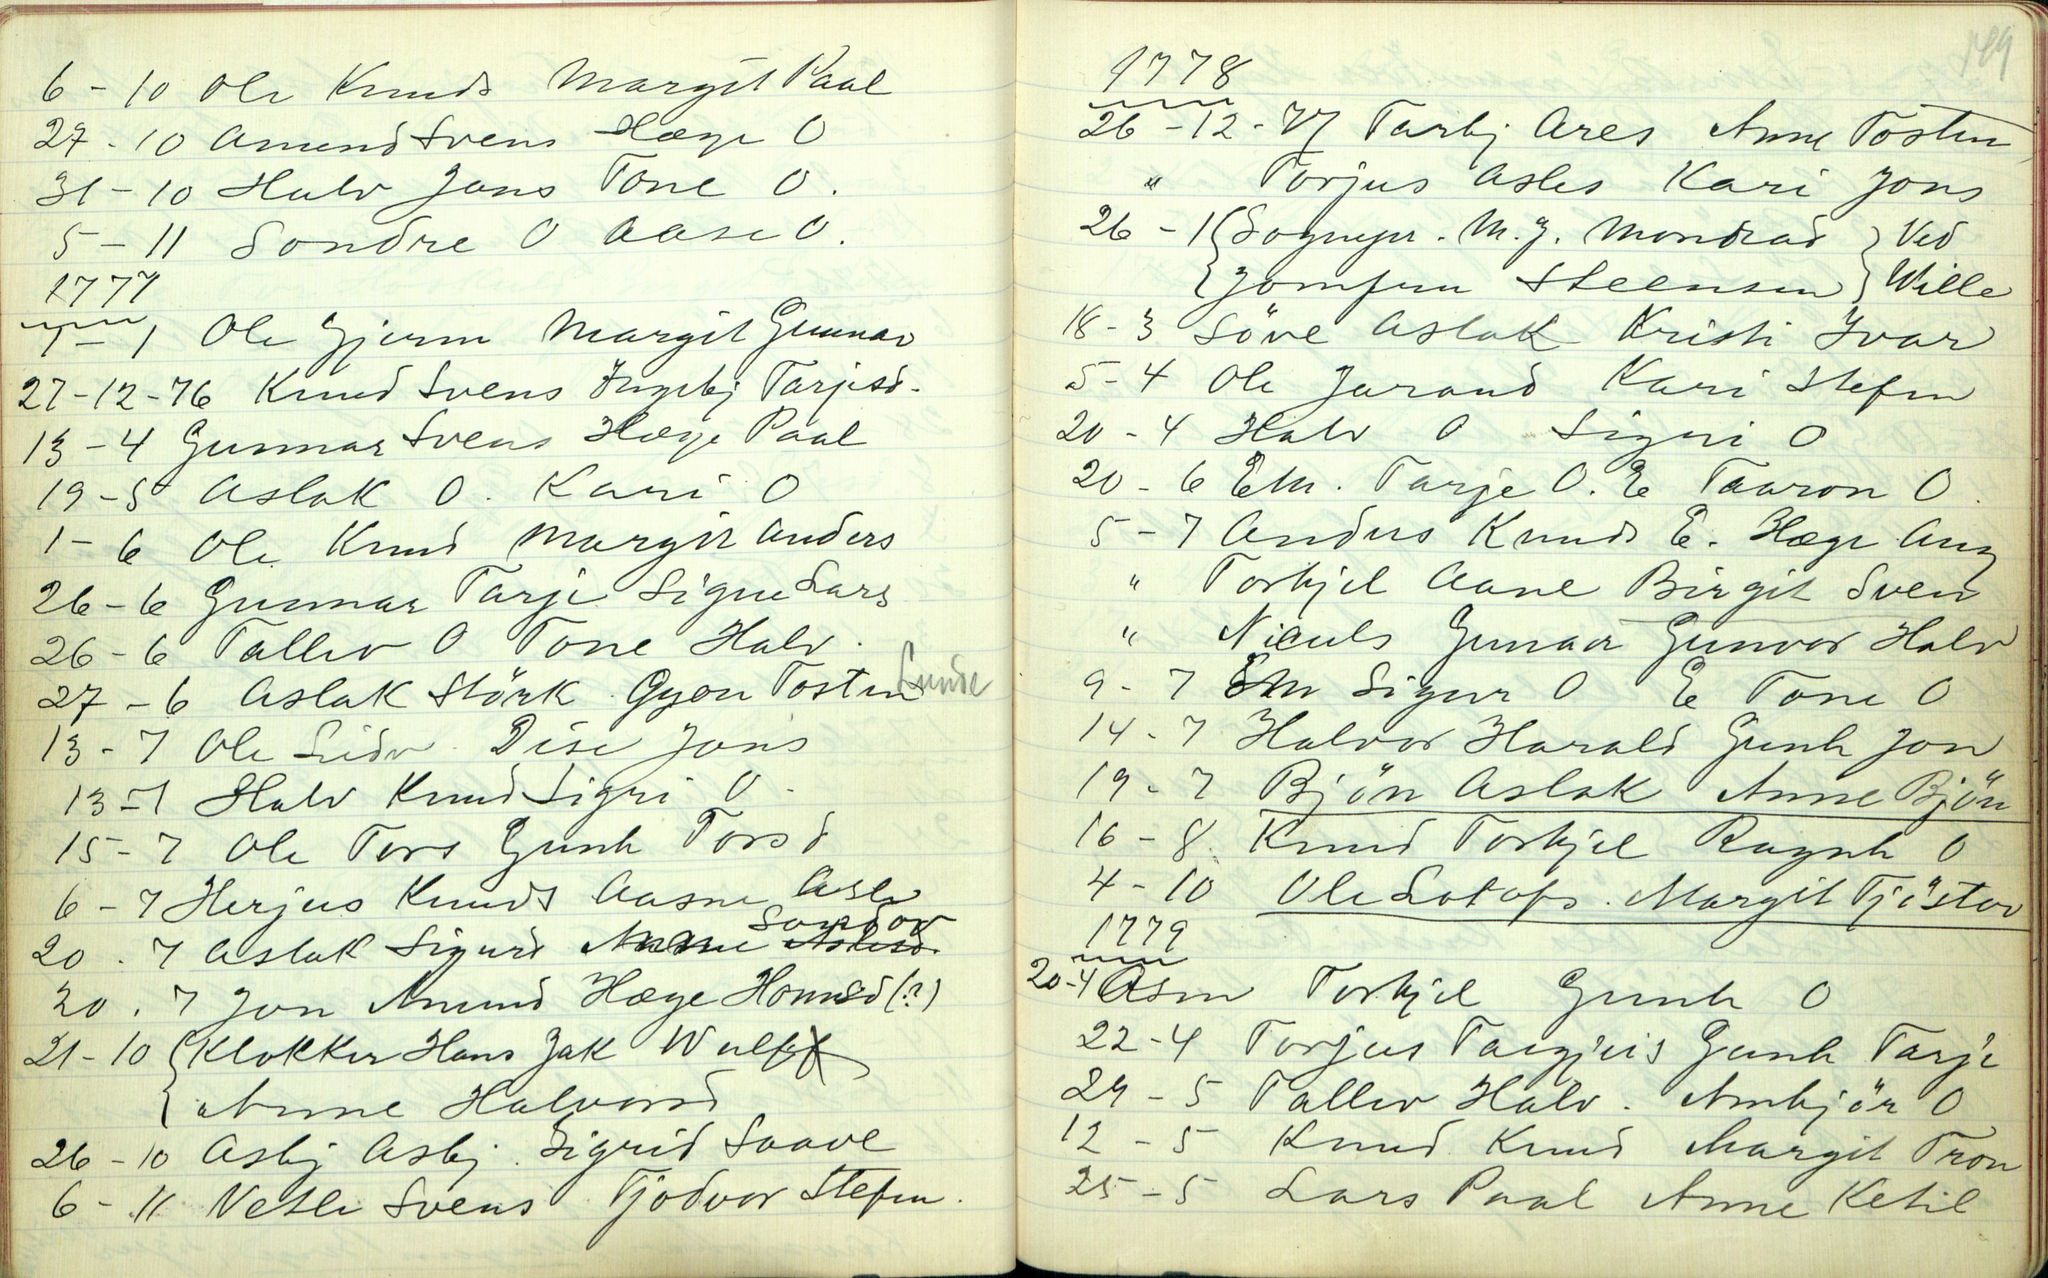 6 - 10 Ole Knuds Margit Paal
27 - 10 Amund Svens Hæge O
31 - 10 Halv Jons Tone O.
5 - 11 Sondre O Aase O.
1777
1 - 1 Ole Gjerm Margit Gunnar
27-12-76 Knud Svens Ingebj Tarjesd.
13 - 4 Gunnar Svens Hæge Paal
19 - 5 Aslak O. Kari O
1 - 6 Ole Knud Margit Anders
26 - 6 Gunnar Tarje Signe Lars
26 - 6 Tallev O Tone Halv.
27 - 6 Aslak Störk Gyon Tosten Lunde
13 - 7 Ole Lidv. Dise Jons
13 - 7 Halv Knud Sigri O.
15 - 7 Ole Tors Gunh Torsd
6 - 7 Herjus Knuds Aasne Asle
Sondov
20 . 7 Aslak Sigurd Anne Aslesd.
20 . 7 Jon Amund Hæge Homsd (?)
21 - 10 { Klokker Hans Jak Wulff
Anne Halvorsd
26 - 10 Asbj Asbj. Sigrid Saavl
6 - 11 Netle Svens Tjodvor Stefen.
149
1778
26 - 12 - 77 Tarbj Ares Anne Tosten
" Torjus Asles Kari Jons
26 - 1 { Sognepr. M. J. Mondrad } Ved
Jomfru Steensen } Wille
18 - 3 Söve Aslak Kristi Ivar
5 - 4 Ole Jorand Kari Stefen
20 - 4 Halv O Sigri O
20 - 6 Em. Tarje O. E Taaron O.
5 - 7 Anders Knuds E. Hæge Aug
" Torkjel Aane Birgit Svend
" Niculs Gunnar Gunvor Halv
9 - 7 Em Sigur O E Tone O
14 - 7 Halvor Harald Gunh Jon
19 - 7 Bjön Aslak Anne Bjön
16 - 8. Knud Torkjel Ragnh O
4 - 10 Ole Lotofs. Margit Tjöstov
1779
20-4 Asm Torkjel Gunh O
22 - 4 Torjus Targjeis Gunh Tarje
24 - 5 Tallev Halv. Ambjör O
12 - 5 Knud Knud Margit Tron
25 - 5 Lars Paal Anne Ketil